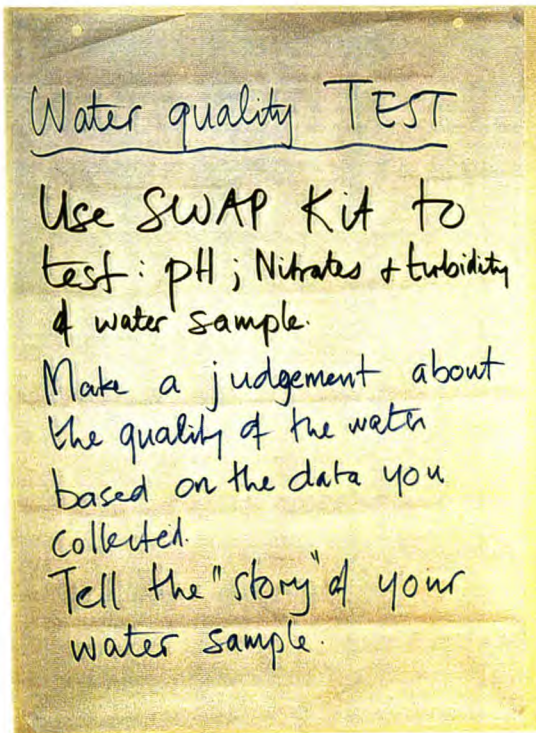 Water quality TEST
Use SWAP Kit to
test: pH; Nitrates + turbidity
of water sample.
Make a judgement about
the quality of the water
based on the data you
collected.
Tell the "story" of your
water sample.